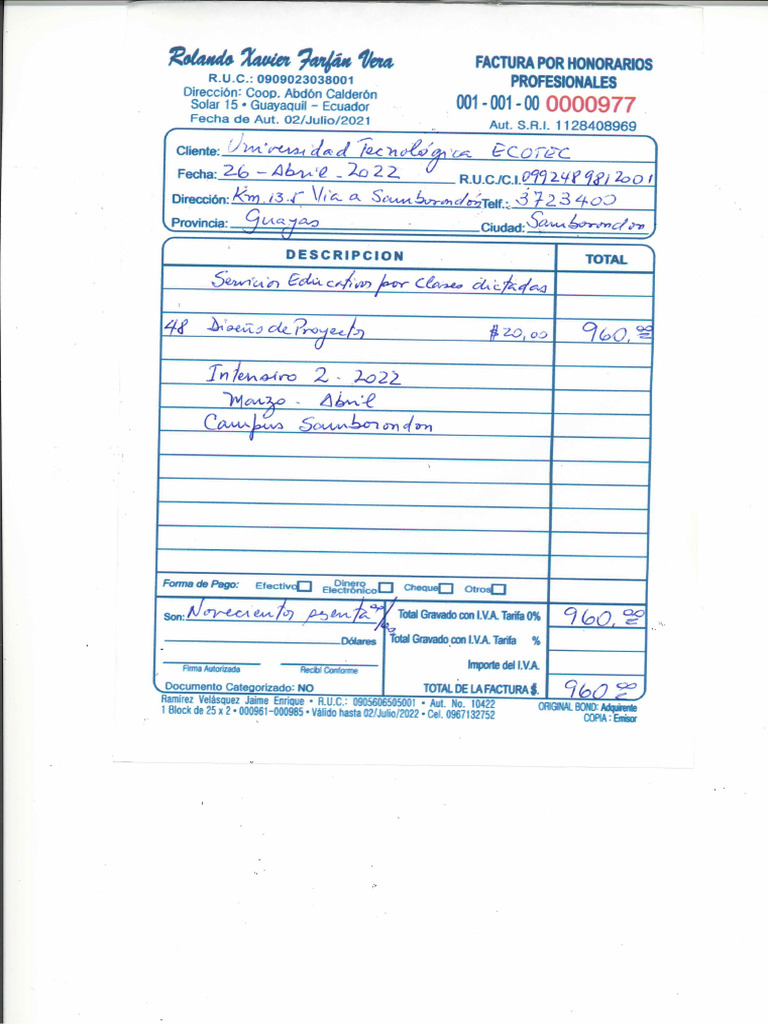 Rolando Xavier Farfán Vera
R.U.C.: 0909023038001
Dirección: Coop. Abdón Calderón
Solar 15 • Guayaquil – Ecuador
Fecha de Aut. 02/Julio/2021
FACTURA POR HONORARIOS
PROFESIONALES
001 - 001 - 00 0000977
Aut. S.R.I. 1128408969
Cliente: Universidad Tecnológica ECOTEC
Fecha: 26 - Abril - 2022 R.U.C./C.I. 0992489812001
Dirección: Km. 13.5 Via a Samborondón Telf.: 3723400
Provincia: Guayas Ciudad: Samborondon
DESCRIPCION TOTAL
Servicios Educativos por Clases dictadas
48 Diseño de Proyectos $20,00 960.00
Intensivo 2 - 2022
Marzo - Abril
Campus Samborondon
Forma de Pago: Efectivo Dinero Electrónico Cheque Otros
Son: Novecientos Total Gravado con I.V.A. Tarifa 0% 960.00
Dólares Total Gravado con I.V.A. Tarifa %
Importe del I.V.A.
Firma Autorizada Recibí Conforme
Documento Categorizado: NO TOTAL DE LA FACTURA $. 960.00
Ramírez Velásquez Jaime Enrique • R.U.C.: 0905606505001 • Aut. No. 10422
1 Block de 25 x 2 • 000961-000985 • Válido hasta 02/Julio/2022 • Cel. 0967132752
ORIGINAL BOND: Adquirente
COPIA : Emisor